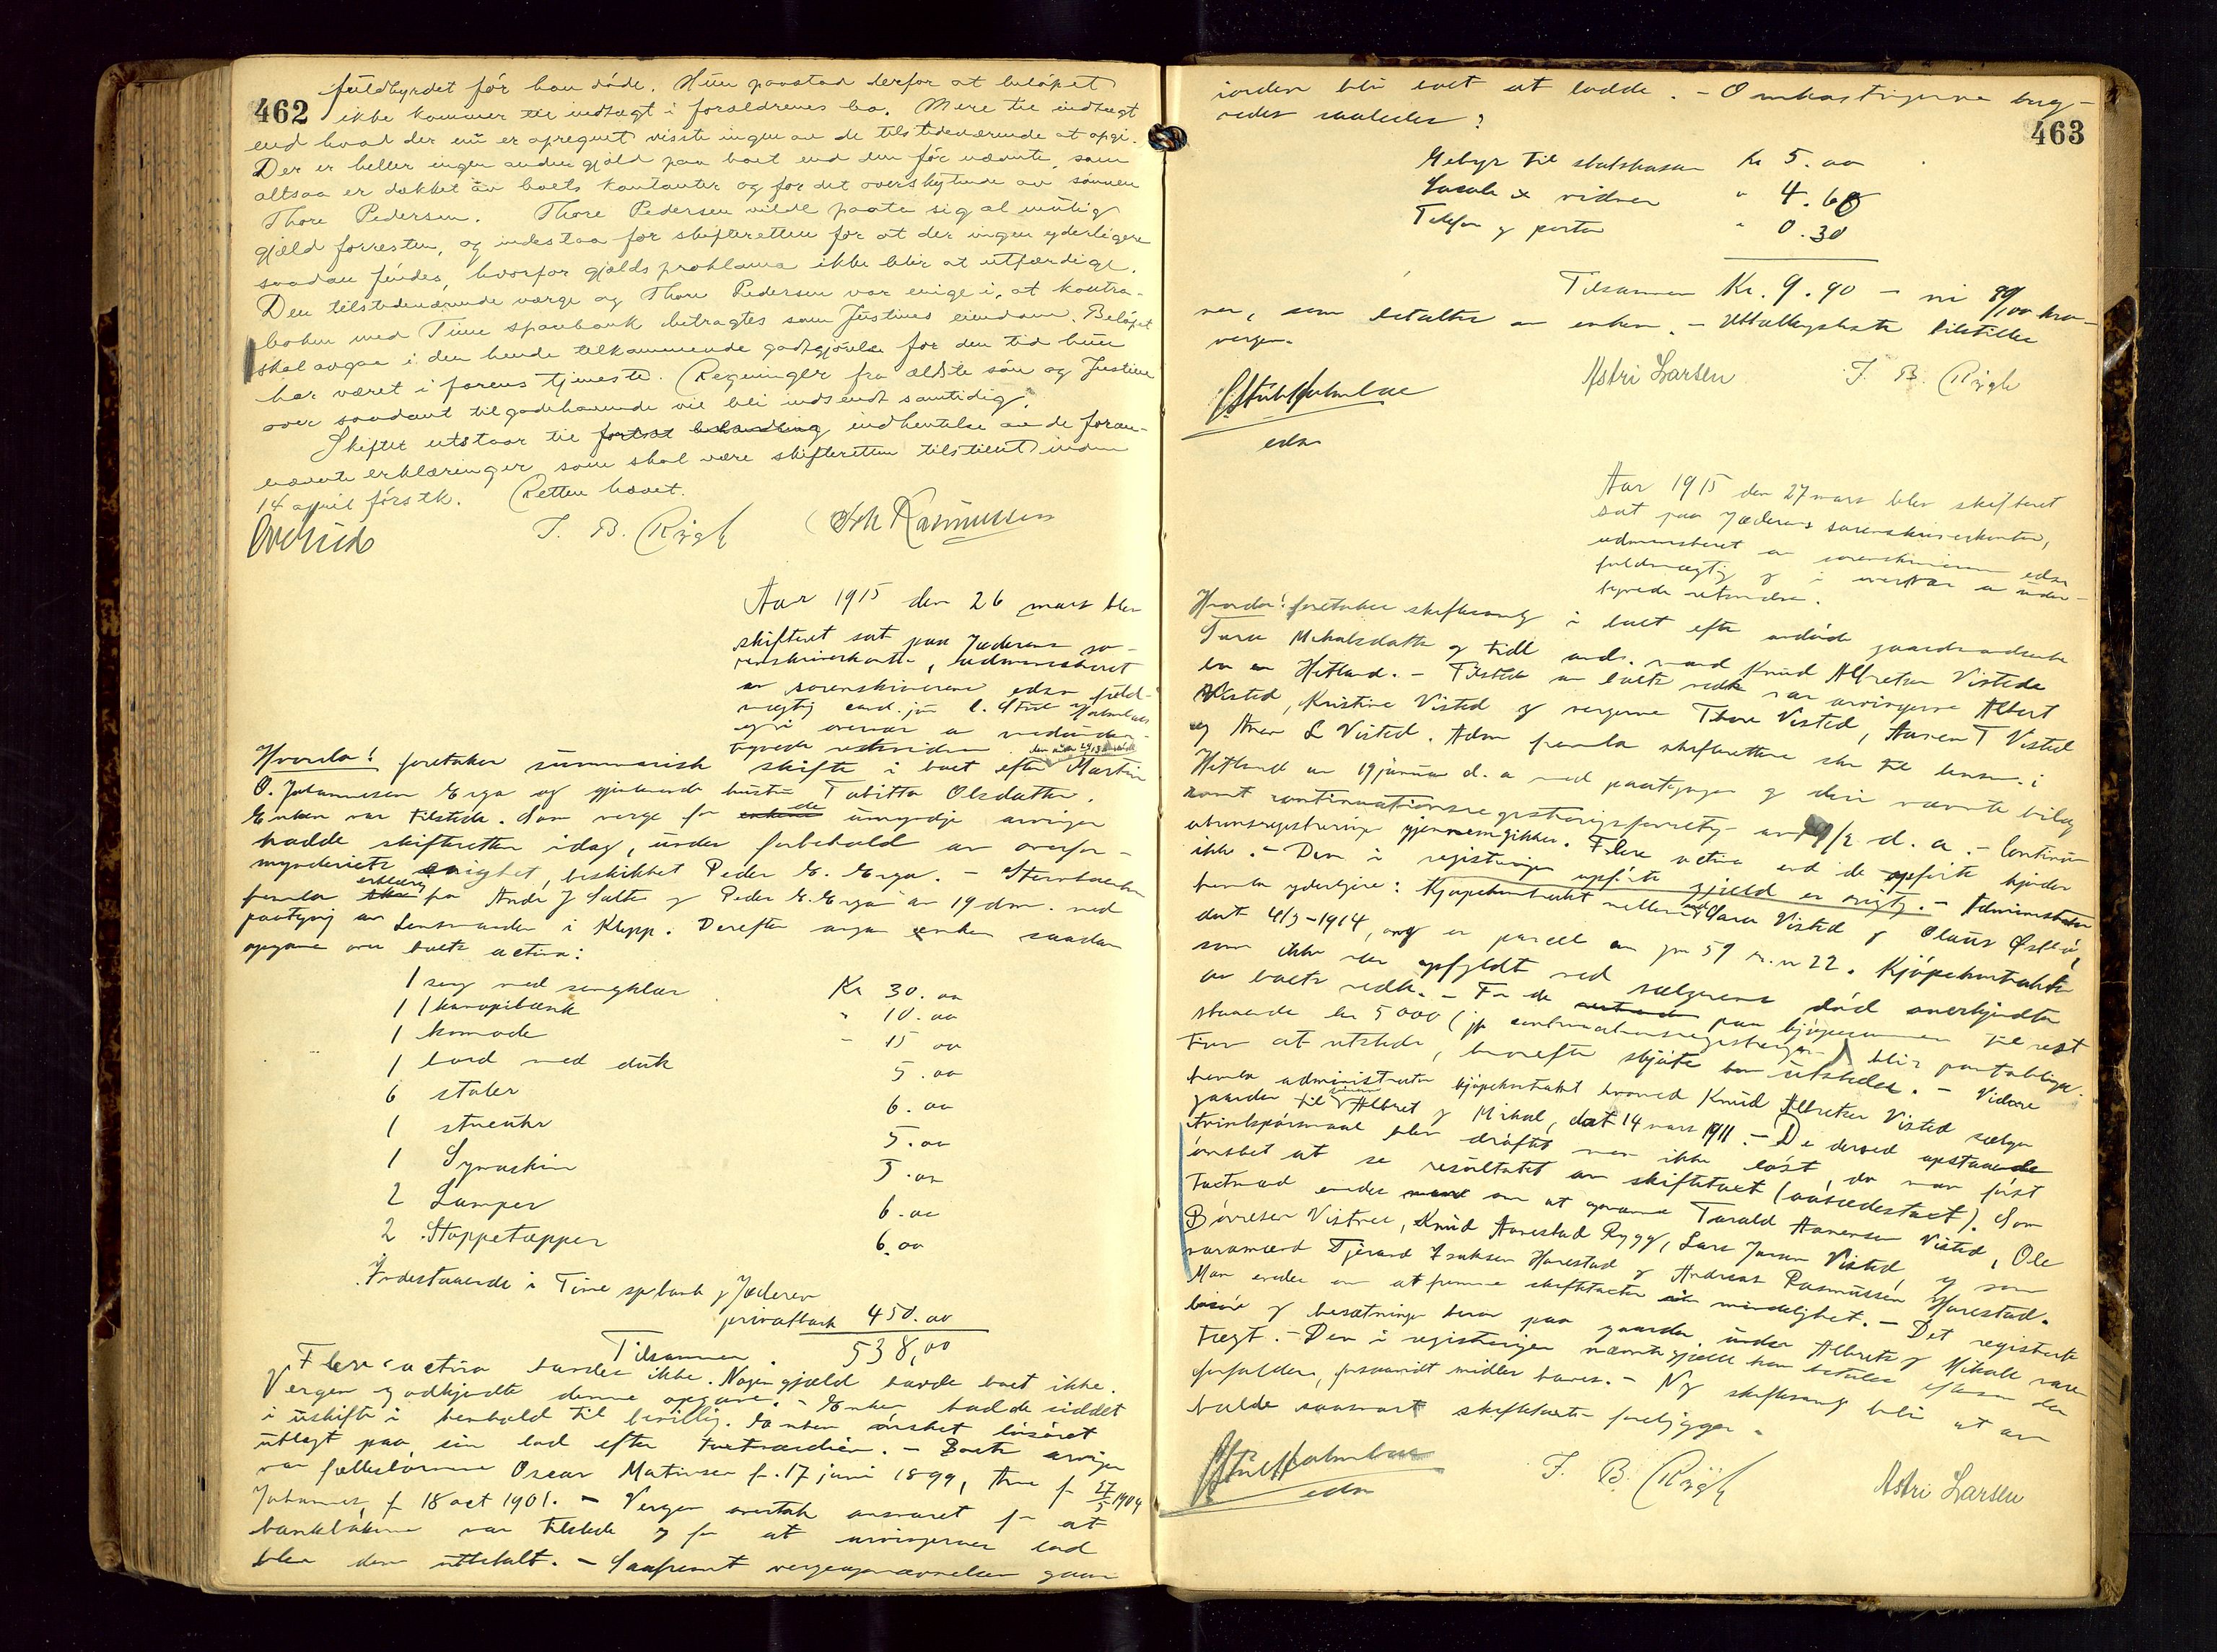 462
fuldbyrdet før han døde. Hun paastod derfor at beløpet
ikke kommer til indtægt i forældrenes bo. Mere til indtægt
end hvad der nu er opregnet visste ingen av de tilstedeværende at opgi.
Der er heller ingen anden gjæld paa boet end den før nævnte, som
altsaa er dækket av boets kontanter og for det overskytende av sønnen
Thore Pedersen. Thore Pedersen vilde paata sig al mulig
gjæld forresten, og indestaa for skifteretten for at der ingen yderligere
saadan findes, hvorfor gjælds proklama ikke blir at utfærdige.
Den tilstedeværende værge og Thore Pedersen var enige i, at kontra-
boken med Time sparebank betragtes som Justines eiendom. Beløpet
skal avgaa i den hende tilkommende godtgjørelse for den tid hun
har været i farens tjeneste. Regninger fra ældste søn og Justine
over saadant tilgodehavende vil bli indsendt samtidig.
Skiftet utstaar til fortsat behandling indhentelse av de foran-
nævnte erklæringer som skal være skifteretten tilstillet inden
14 april førstk. Retten hævet.
T. B. Rygh Joh Rasmussen
Aar 1915 den 26 mars blev
skifteret sat paa Jæderens so-
renskriverkontor, administreret
av sorenskriverens edsv. fuld-
mægtig cand. jur C. Stub Holmboe
og i overvær av nedenun-
tegnede retsvidner.
Hvorda! foretokes summarisk skifte i boet efter Martin
O. Johannesen Erga og gjenlevende hustru Tobitta Olsdatter.
Enken var tilstede. Som verge for enkens de umyndige arvinger
hadde skifteretten idag, under forbehold av overfor-
mynderiets enighet, beskikket Peder E. Erga. -
fremla erklæring fra Andr J Salte og Peder E. Erga av 19 dm. med
paategning av Lensmanden i Klepp. Derefter avga enken saadan
opgave over boets activa:
1 seng med sengklær Kr 30.00
1 kanapebænk " 10.00
1 komode - 15 00
1 bord med duk 5.00
6 stoler 6.00
1 stueuhr 5.00
1 Symaskin 5.00
2 Lamper 6.00
2 Stoppetæpper 6.00
Indestaaende i Time sp.bank og Jæderen
privatbank 450.00
Tilsammen 538,00
Flere activa havdes ikke. Nogen gjæld havde boet ikke.
Vergen godkjendte denne opgave. - Enken hadde siddet
i uskifte i henhold til bevilling. Enken ønsket løsøret
utlagt paa sin lod efter takstværdien. - Boets arvinger
var fællesbørnene Oscar Matinsen f. 17 juni 1899, Arne f 27/5 1904
Johannes f 18 oct 1901. - Vergen overtok ansvaret for at
bankbøkerne var tilstede og for at arvingernes lod
blev dem uttalt. - Saafremt vergeopnævnelsen gaar
463
iorden bli boet at lodde. - Omkostningerne bereg-
nedes saaledes:
Gebyr til statskassen Kr 5.00
Lokale & vidner " 4.60
Telefon og porto " 0.30
Tilsammen Kr. 9.90 - ni 90/100 kro-
ner, som betaltes av enken. - Utlodningslisten tilstilles
vergen.
C Stub Holmboe Astri Larsen T. B. Rygh
edsv
Aar 1915 den 27 mars blev skifteret
sat paa Jæderens sorenskriverkontor,
administreret av sorenskriverens edsv
fuldmægtig og i overvær av under-
tegnede retsvidner.
Hvorda! foretokes skiftesamling i boet efter avdøde gaardmandsenke
Sara Mikalsdatter og tidl avd. mand Knud Albretsen Vistedes
bo av Hetland. - Tilstede av boets vedk var arvingerne Albert
Visted, Kristine Visted og vergerne Thore Visted, Aanen T Visted
og Anen L Visted. Adm fremla skifterettens skr til lensm. i
Hetland av 19 januar d. a med paategning og deri nævnte bilag
samt continuationsregistreringsforretn. av 19/2 d. a. - Continu-
ationsregistrering gjennemgikkes. Flere activa end de opførte kjendes
ikke. - Den i registreringen opførte gjæld er rigtig. - Administrator
fremla yderligere: Kjøpekontrakt mellem avd Sara Visted og Olaus Østbø,
dat 4/3-1914, ang en parcel av gn 59 b.n 22. Kjøpekontrakten
som ikke var opfyldt ved sælgerens død anerkjendtes
av boets vedk. - For de paa kjøpesummen til rest
staaende kr 5000 (jfr continuationsregistreringen) blir pantobliga-
tion at utstede, hvorefter skjøte kan utstedes. - Videre
fremla administrator kjøpekontrakt hvorved Knud Albretsen Visted sælger
gaarden til sønnene Albret og Mikal, dat 14 mars 1911. - De derved opstaaende
tvivlspørsmaal blev drøftet men ikke løst, da man først
ønsket at se resultatet av skiftetaxt (aasædestaxt). Som
taxtmænd enedes man om at opnævne Torald Aanensen Visted, Ole
Børresen Vistnes, Knud Harestad Rygg, Lars Jansen Visted, og som
varamænd Tjerand Isaksen Harestad og Andreas Rasmussen Harestad.
Man enedes om at fremme skiftetaxten i mindelighet. - Det registrerte
løsøre og besætning beror paa gaarden under Albrets og Mikals vare-
tægt. - Den i registreringen nævnte gjæld kan betales eftersom den
forfalder, forsaavidt midler haves. - Ny skiftesamling bli at av-
holde saasnart skiftetaxten foreligger.
C Stub Holmboe T. B. Rygh Astri Larsen
edsv